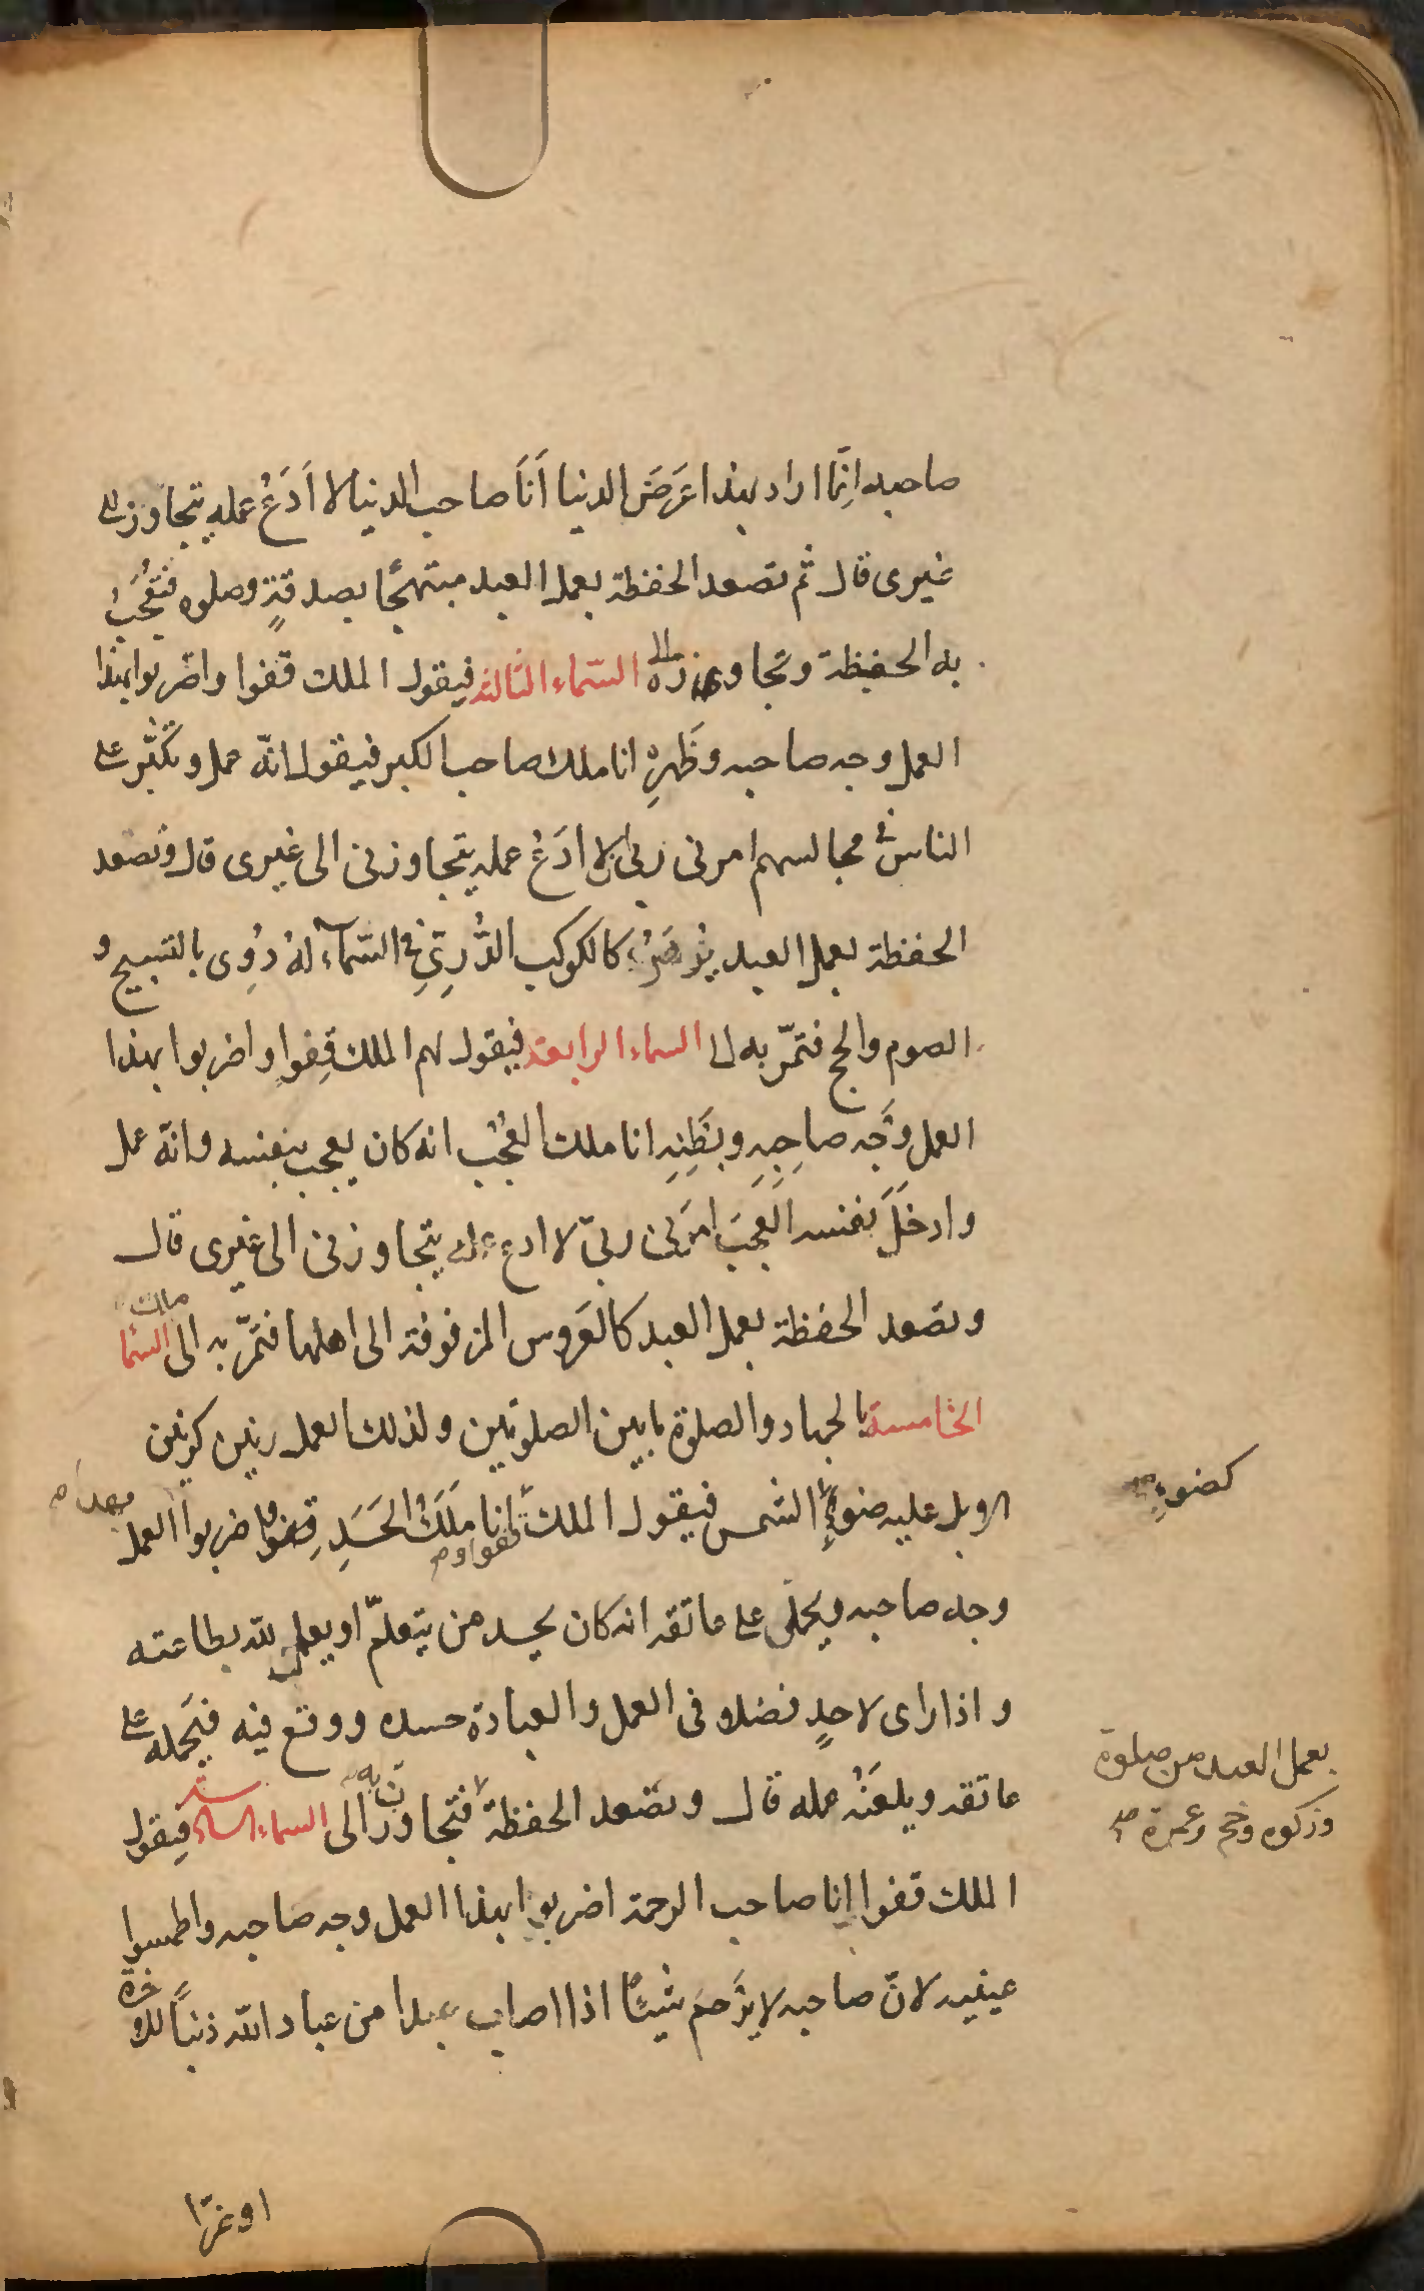 صاحبه اِنَّما اراد بهذا عَرَضَ الدنيا اَنَا صاحب الدنيا لا اَدَعُ عمله يتجاوز الى
غيرى قال ثم تصعد الحفظة بعمل العبد مبتهجًا بصدقةٍ وصلوه فتُعْجَبُ
به الحفيظة وتجاوزه الى السّماء الثالثه فيقول الملك قفوا واضربوا بهذا
العمل وجه صاحبه وظَهرِهِ انا ملك صاحب الكبر فيقول انّه عمل وتكَبَّر على
الناس فى مجالسهم امرنى ربى ان لا ادَعُ عمله يتجاوزنى الى غيرى قال وتصعد
الحفظة بعمل العبد يزهَرُ كالكوكب الدُّرِىِّ فى السّماء لهُ دَوِى بالتسبيح و
الصوم والحج فتمرّ به الى السماء الرابعة فيقول لهم الملك قِفوا واضربوا بهذا
العمل وَجْه صاحِبِهِ وبَطنِهِ انا ملك العُجْب انه كان يعجب بنفسه وانّه عمل
وادخَلَ نفسه العجبَ امَرَنى ربىّ لا ادع عمله يتجاوزنى الى غيرى قال
وتصعد الحفظة بعمل العبد كالعَروس المزفوفة الى اهلها فتمرّ به الى ملك السّما
الخامسة بالجهاد والصلوة ما بين الصلوتين ولذلك العمل رنين كرنين
الابل عليه ضوءٌ الشمس فيقول الملك قفوا انا مَلَكُ الحَسَدِ واضربوا بهذا العمل
كضوءِ صح
وجه صاحبه ويحمل على عاتقه انه كان يحسد من يتعلّم او يعمل لله بطاعته
واذا راى لاحدٍ فضلا فى العمل والعبادة حسده ووقع فيه فيَحمله على
عاتقه ويلعَنُه عمله قال وتصعد الحفظة فتجاوز به الى السماء السادسة فيقول
بعمل العبد من صلوة
وزكوه وحج وعمرة صح
الملك قفوا انا صاحب الرحمة اضربوا بهذا العمل وجه صاحبه واطمسوا
عينيه لانّ صاحبه لا يَرْحم شيئًا اذا اصاب عبدا من عباد الله ذنبًا للاخرة
او ضرّا